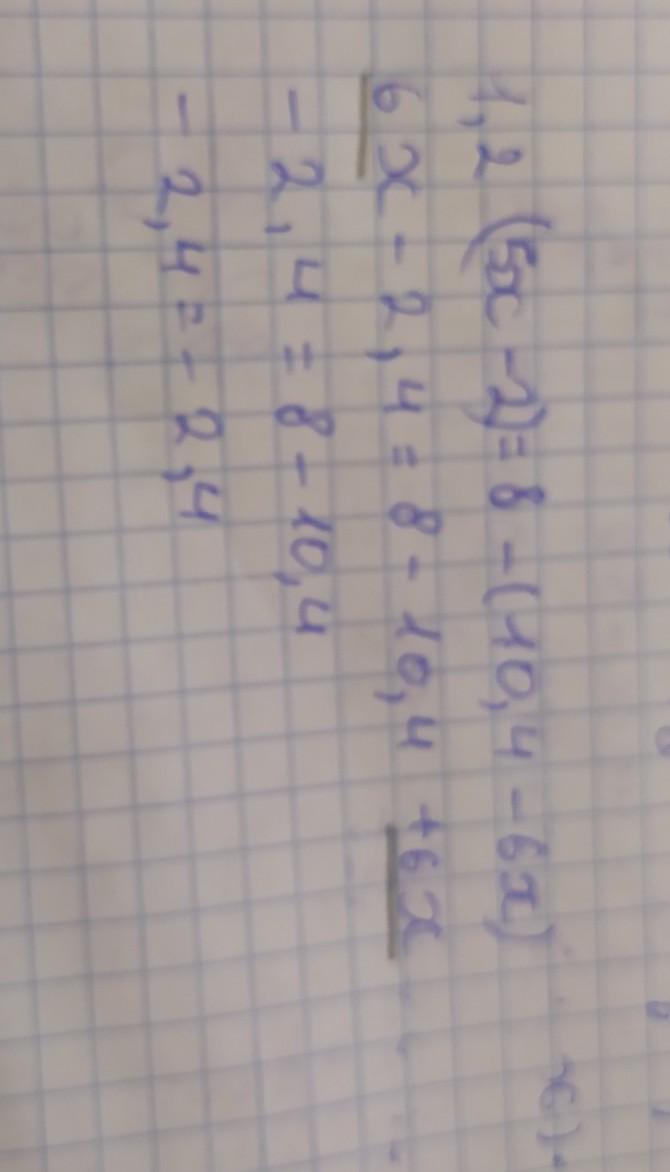 1,2 (5x - 2) = 8 - (10,4 - 6x)
6x - 2,4 = 8 - 10,4 + 6x
- 2,4 = 8 - 10,4
- 2,4 = - 2,4